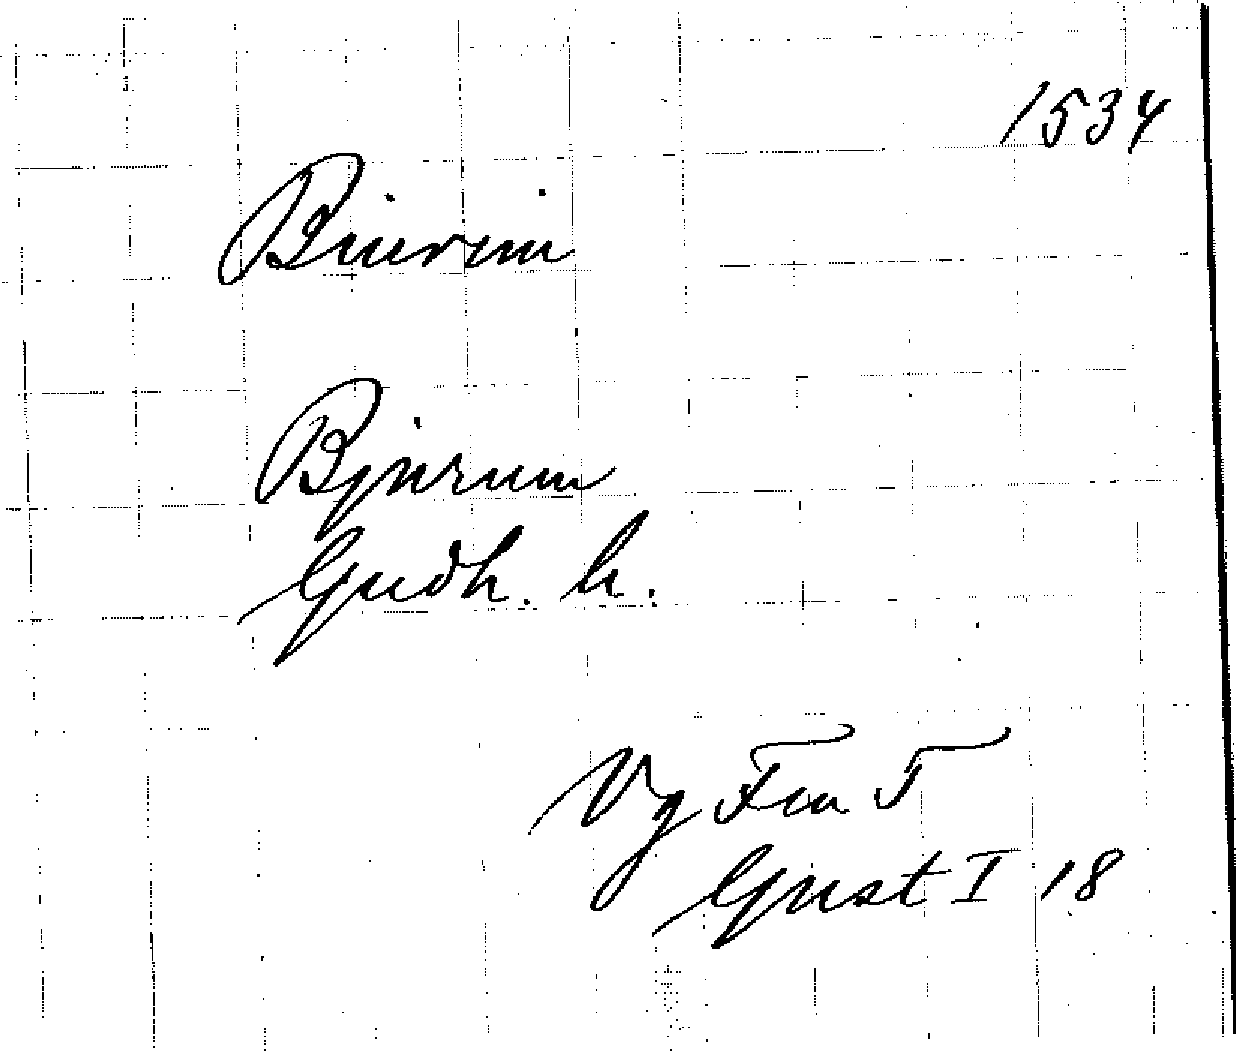 1534
Biurim
Bjurum
Gudh. h.
Vg
Gust I 18